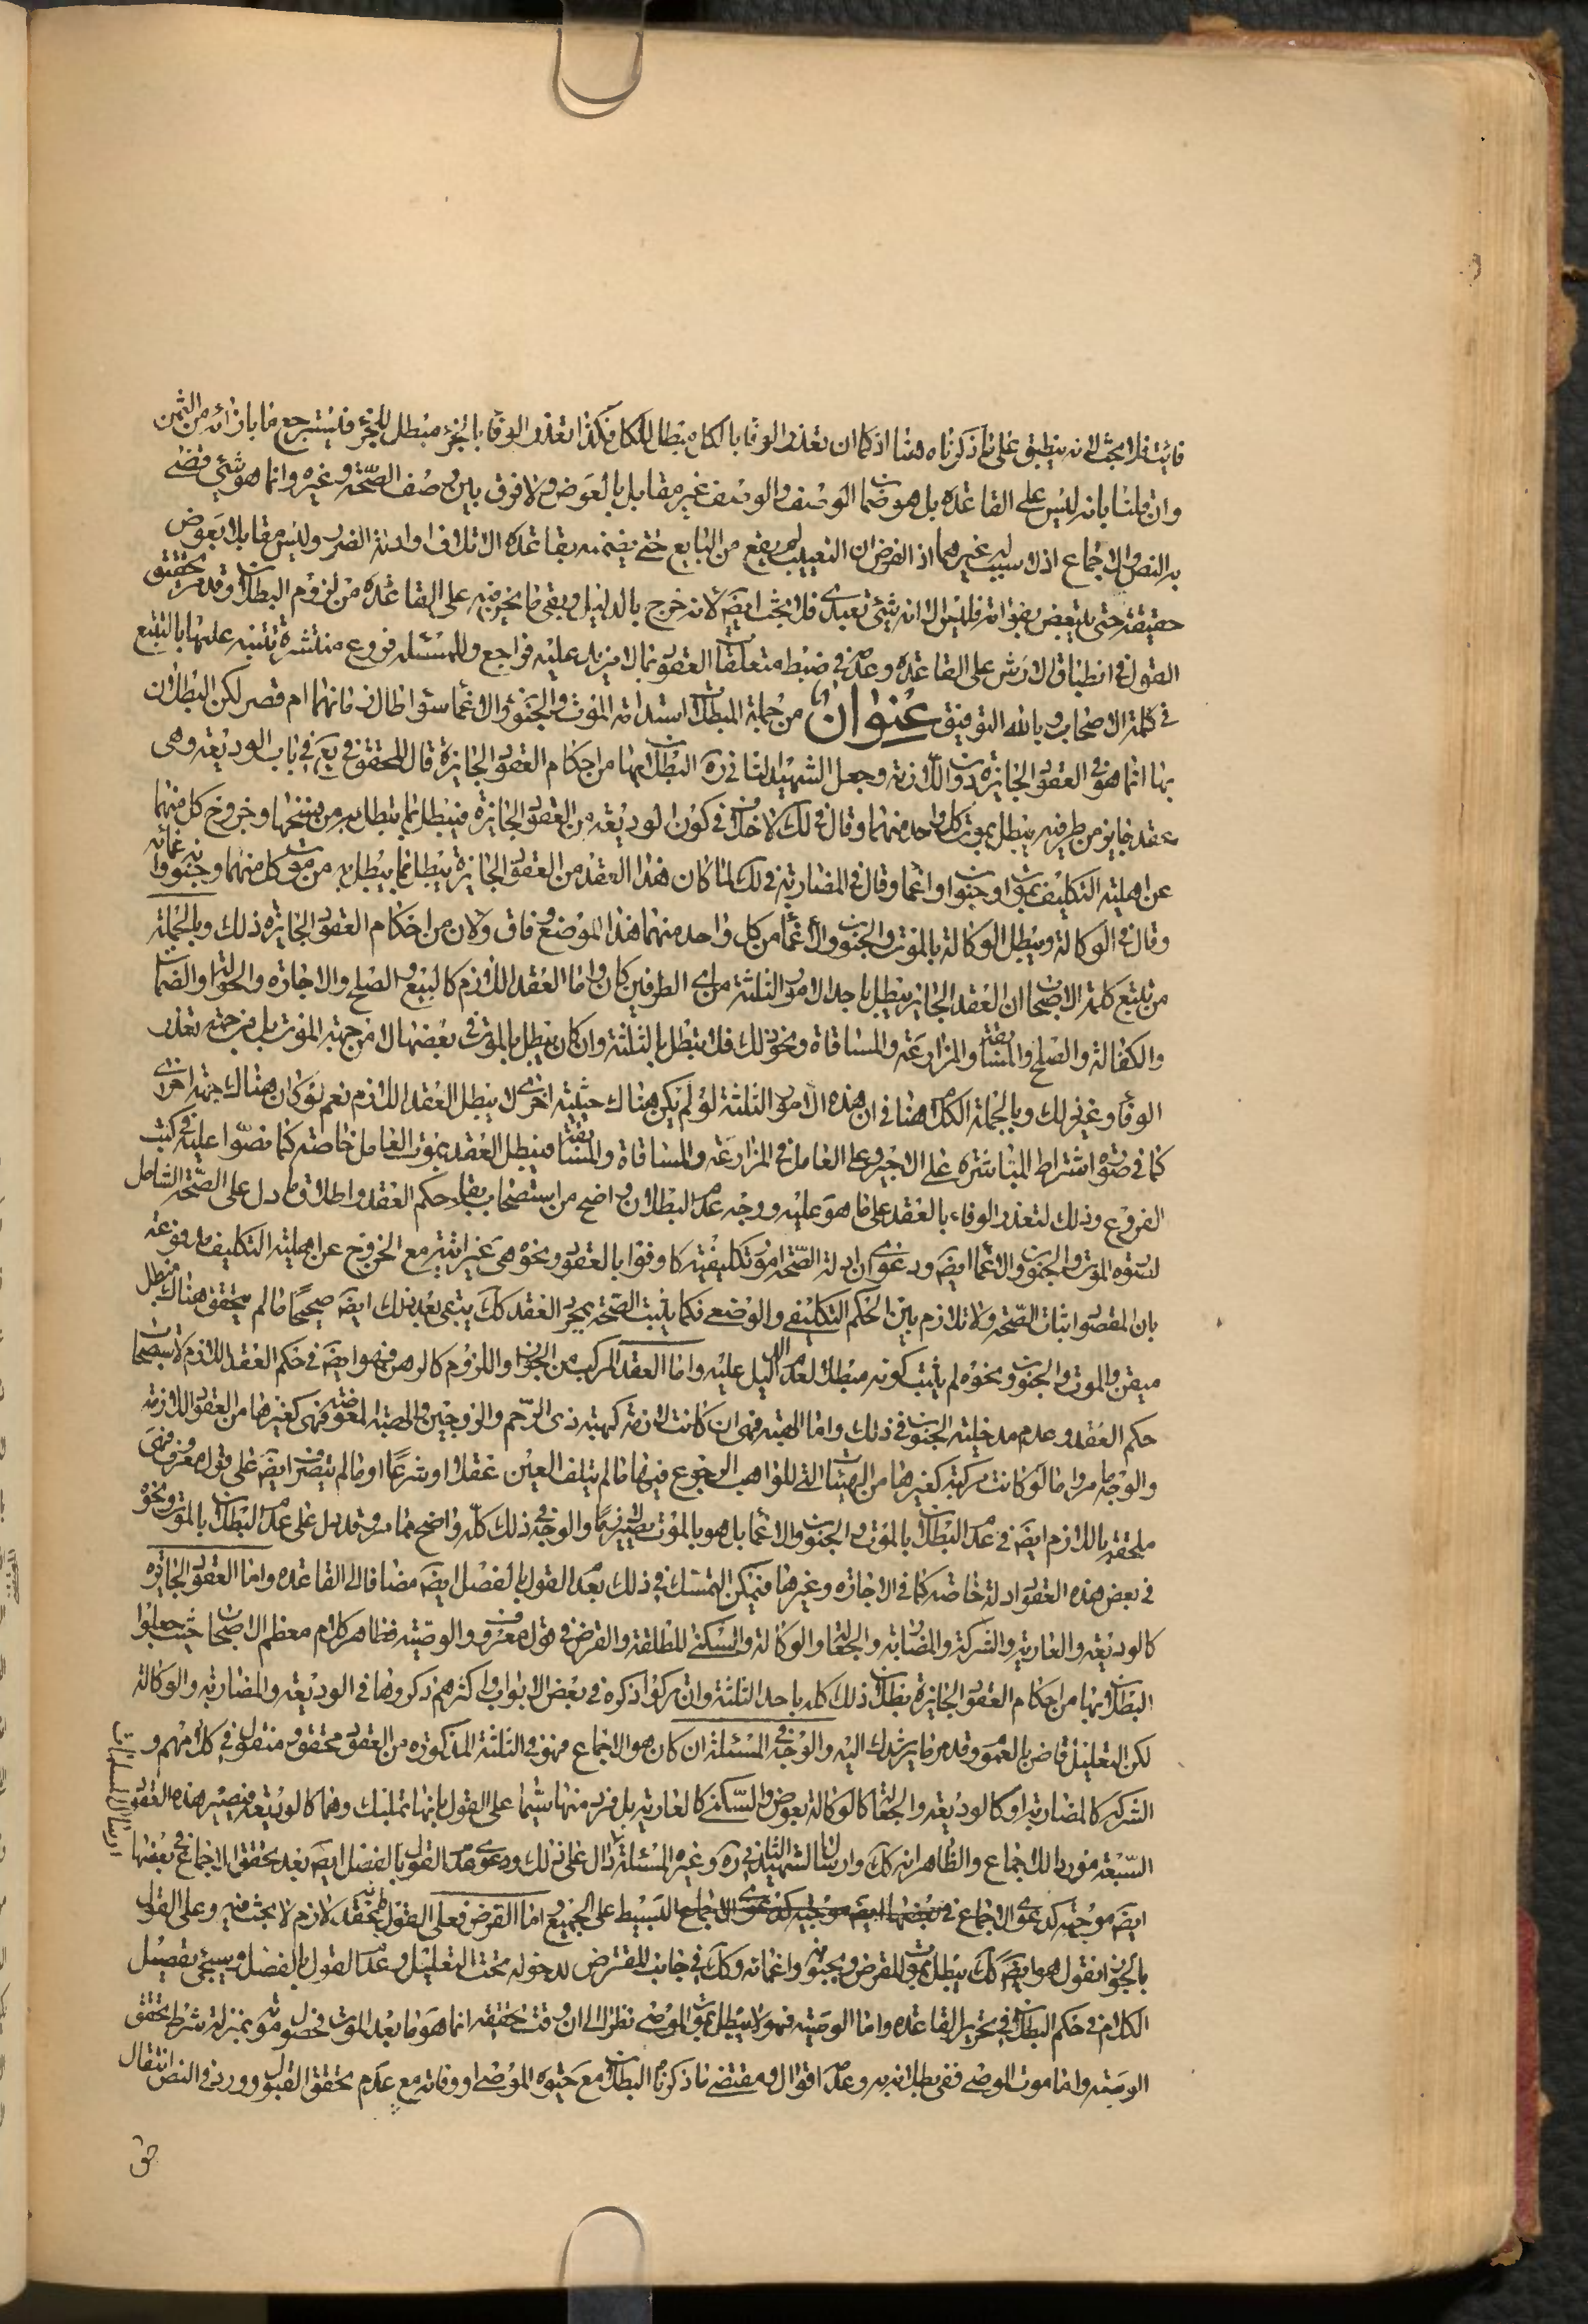 فائت فلا بحث لانه ينطبق على ما ذكرناه هنا اذ كما ان تعذر الوفا بالكل مبطل للكل فكذا تعذر الوفا بالجزء مبطل للجزء فليسترجع ما بازائه من الثمن
وان قلنا بانه ليس على القاعدة بل هو ضمان الوصف والوصف غير مقابل بالعوض ولا فرق بين وصف الصحة وغيره وانما هو شئ قضى
به النص والاجماع اذ لا سبب له غيرهما اذ الفرض ان التعييب لم يقع من البايع حتى يضمنه بقاعدة الاتلاف او ادلة الضرر وليس مقابلا بعوض
حقيقة حتى يتبعض بفواته فليس الا انه شئ تعبدى فلا بحث ايضا لانه خرج بالدليل وبقى ما نحن فيه على القاعدة من لزوم البطلان وقد مر تحقيق
القول فى انطباق الارش على القاعدة وعدمه فى ضبط متعلقات العقود بما لا مزيد عليه فراجع وللمسئلة فروع منتشرة تتنبه عليها بالتتبع
فى كلمة الاصحاب وبالله التوفيق عنوان من جملة المبطلات استدامة الموت والجنون والاغماء سواء طال زمانهما ام قصر لكن البطلان
بها انما هو فى العقود الجائزة دون اللازمة وجعل الشهيد الثانى ره البطلان بها من احكام العقود الجائزة قال المحقق فى يع فى باب الوديعة وهى
عقد جايز من طرفيه يبطل بموت كل واحد منهما وقال فى لك لا خلاف فى كون الوديعة من العقود الجائزة فيبطل بما يبطل به من فسخها وخروج كل منهما
عن اهلية التكليف بموت او جنون او اغماء وقال فى المضاربة فى لك لما كان هذا العقد من العقود الجائزة يبطل بما يبطل به من موت كل منهما وجنونه واغمائه
وقال فى الوكالة ويبطل الوكالة بالموت والجنون والاغماء من كل واحد منهما هذا الموضع وفاق ولان من احكام العقود الجائزة ذلك وبالجملة
من تتبع كلمة الاصحاب ان العقد الجايز يبطل باحد الامور الثلثة من اى الطرفين كان واما العقد اللازم كالبيع والصلح والاجارة والحوالة والضمان
والكفالة والصلح والمسابقة والمزارعة والمساقاة ونحو ذلك فلا تبطل بالثلثة وان كان يبطل بالموت فى بعضها لا من جهة الموت بل من جهة تعذر
الوفاء وغير ذلك وبالجملة الكلام هنا فى ان هذه الامور الثلثة لو لم يكن هناك حيثية اخرى لا يبطل العقد اللازم نعم لو كان هناك جهة اخرى
كما فى صورة اشتراط المباشرة على الاجير وعلى العامل فى المزارعة والمساقاة والمسابقة فيبطل العقد بموت العامل خاصة كما نصوا عليه فى كتب
الفروع وذلك لتعذر الوفاء بالعقد على ما هو عليه ووجه عدم البطلان واضح من استصحاب بقاء حكم العقد واطلاق ما دل على الصحة الشامل
لصورة الموت والجنون والاغماء ايضا ودعوى ان ادلة الصحة امور تكليفية كاوفوا بالعقود ونحوه وهى غير اتية مع الخروج عن اهلية التكليف مدفوعة
بان المقصود اثبات الصحة ولا تلازم بين الحكم التكليفى والوضعى فكما يثبت الصحة بمجرد العقد كك يبقى بعد ذلك ايضا صحيحا ما لم يتحقق هناك مبطل
ميقن والموت والجنون ونحوه لم يثبت كونه مبطلا لعدم الدليل عليه واما العقد المركب من الجواز واللزوم كالرهن فهو ايضا فى حكم العقد اللازم لاستصحاب
حكم العقد وعدم مدخلية الجنون فى ذلك واما الهبة فهى ان كانت لازمة كهبة ذى الرحم والزوجين والهبة المعوضة فهى كغيرها من العقود اللازمة
والوجه ما مر واما لو كانت كهبة كغيرها من الهبات التى للواهب الرجوع فيها ما لم يتلف العين عقلا او شرعا او ما لم يتصرف ايضا على قول معروف فهى
ملحقة باللازم ايضا فى عدم البطلان بالموت والجنون والاغماء بل هو بالموت يصير لازما والوجه فى ذلك كله واضح مما مر وقد يدل على عدم البطلان بالموت ونحوه
فى بعض هذه العقود ادلة خاصة كما فى الاجارة وغيرها فيمكن التمسك فى ذلك بعدم القول بالفصل ايضا مضافا الى القاعدة واما العقود الجائزة
كالوديعة والعارية والشركة والمضاربة والجعالة والوكالة والسكنى المطلقة والقرض فى قول معروف والوصية فظاهر كلام معظم الاصحاب حيث جعلوا
البطلان بها من احكام العقود الجائزة بطلان ذلك كله باحد الثلثة وان تركوا ذكره فى بعض الابواب واكثرهم ذكروها فى الوديعة والمضاربة والوكالة
لكن التعليل قاض بالعموم وقد مر ما يرشدك اليه والوجه فى المسئلة ان كان هو الاجماع فهو فى الثلثة المذكورة من العقود محقق ومنقول فى كلامهم و
الشركة كالمضاربة او كالوديعة والجعالة كالوكالة بعوض والسكنى كالعارية بل فرد منها سيما على القول بانها تمليك وهما كالوديعة فيصير هذه العقود
السبعة موردا للاجماع والظاهر انه كك وارسال الشهيد الثانى ره وغيره المسئلة دال على ذلك ودعوى عدم القول بالفصل ايضا بعد تحقق الاجماع فى بعضها
ارسال المسلمات
ايضا موجهة كدعوى الاجماع البسيط على الجميع واما القرض فعلى القول بانه عقد لازم لا بحث فيه وعلى القول
بالجواز نقول هو ايضا كك يبطل بموت المقرض وبجنونه واغمائه وكك فى جانب المقترض لدخوله تحت التعليل وعدم القول بالفصل وسيجئ تفصيل
الكلام فى حكم البطلان فى تحرير القاعدة واما الوصية فهو لا يبطل بموت الموصى نظرا الى ان وقت حقيقته انما هو ما بعد الموت فحصول موته بمنزلة شرط تحقق
الوصية واما موت الموصى ففى بطلانه به وعدمه اقوال ومقتضى ما ذكرناه البطلان مع حيوة الموصى او وفاته مع عدم تحقق القبول وورد فى النص انتقال
حق